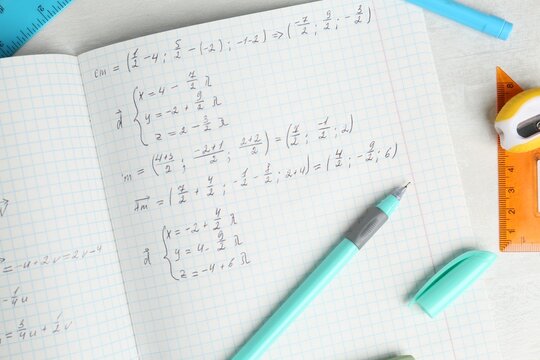 cm = (1/2 - 4; 5/2 - (-2); -1-2) => (-7/2; 9/2; -3/2)
d { x = 4 - 7/2 λ
y = -2 + 9/2 λ
z = 2 - 3/2 λ
m = (4+3/2; -2+1/2; 2+2/2) = (7/2; -1/2; 2)
Am = (7/2 + 4/2; -1/2 - 3/2; 2+4) = (4/2; -9/2; 6)
d { x = -2 + 4/2 λ
y = 4 - 9/2 λ
z = -4 + 6 λ
= -u + 2v = 2v - 4
- 1/4 u
= 3/4 u + 1/2 v